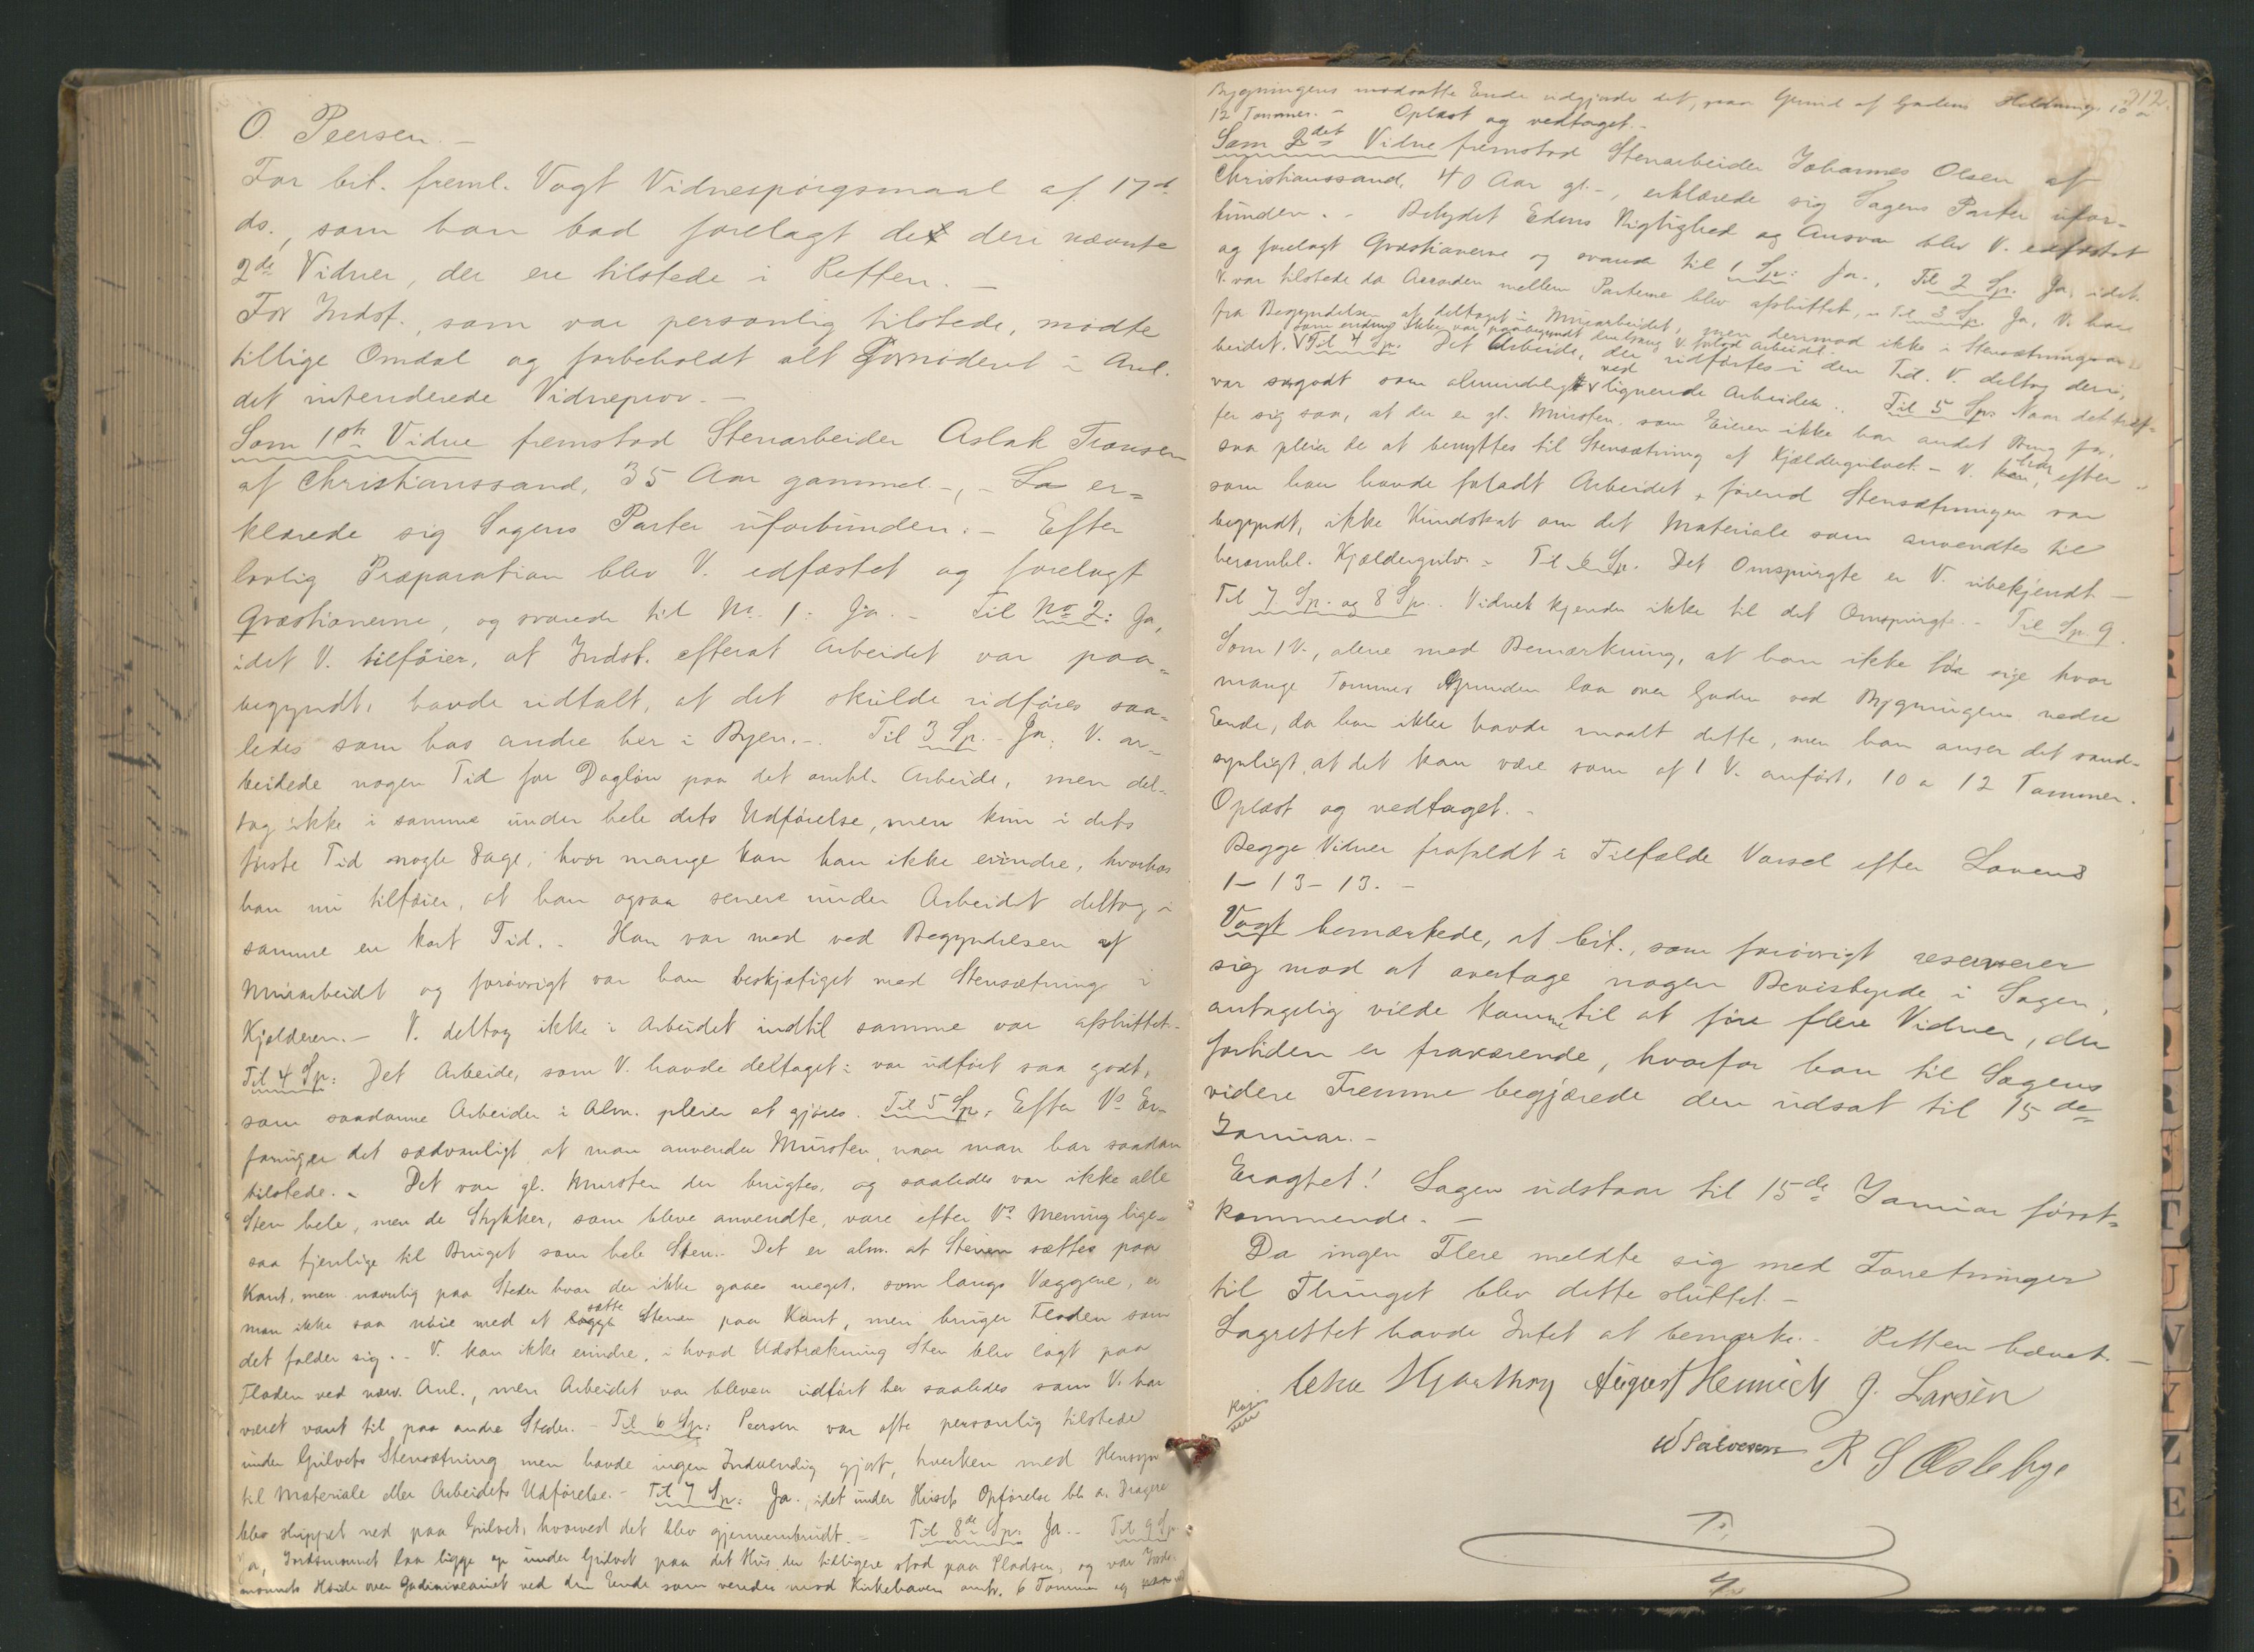 O. Peersen. –
For Cit. freml. Vogt Vidnespørgsmaal af 17d
ds., som han bad forelagt de deri nævnte
2de Vidner, der ere tilstede i Retten. –
For Indst., som var personlig tilstede, mødte
tillige Omdal og forbeholdt alt Fornødent i Anl.
det intenderede Vidneprov. –
Som 1ste Vidne fremstod Stenarbeider Aslak Tronsen
af Christianssand, 35 Aar gammel -, - er=
klærede sig Sagens Parter uforbunden. – Efter
lovlig Præparation blev V. edfæstet og forelagt
Qvæstionerne, og svarede til No. 1. Ja. – Til No 2: Ja,
idet V. tilføier, at Indst. efterat Arbeidet var paa=
begyndt, havde udtalt, at det skulde udføres saa=
ledes som hos andre her i Byen. – Til 3 Sp. – Ja. V. ar=
beidede nogen Tid for Dagløn paa det omhl. Arbeide, men del=
tog ikke i samme under hele dets Udførelse, men kun i dets
første Tid nogle Dage, hvor mange kan han ikke erindre, hvorhos
han nu tilføier, at han ogsaa senere under Arbeidet deltog i
samme en kort Tid. – Han var med ved Begyndelsen af
Murarbeidet og forøvrigt var han beskjæftiget med Stensætning i
Kjælderen. – V. deltog ikke i Arbeidet indtil samme var afsluttet. –
Til 4 Sp: Det Arbeide, som V. havde deltaget i var udført saa godt,
som saadanne Arbeider i Alm. pleier at gjøres. Til 5 Sp: Efter Vs Er=
faring er det sædvanligt at man anvender Mursten, naar man har saadan
tilstede. – Det var gl. Mursten der brugtes, og saaledes var ikke alle
Sten hele, men de Stykker, som bleve anvendte, vare efter Vs Mening lige=
saa tjenlige til Bruget som hele Sten. – Det er alm. at Stenen sættes paa
Kant, men navnlig paa Steder hvor der ikke gaaes meget, som langs Væggene, er
man ikke saa nøie med at sætte Stenen paa Kant, men bruger Fladen som
det falder sig. – V. kan ikke erindre, i hvad Udstrækning Sten blev lagt paa
Fladen ved nærv. Anl., men Arbeidet var bleven udført her saaledes som V. har
været vant til paa andre Steder. – Til 6 Sp: Peersen var ofte personlig tilstede
under Gulvets Stensætning men havde ingen Indvending gjort, hverken med Hensyn
til Materiale eller Arbeidets Udførelse. – Til 7 Sp: Ja., idet under Husets Opførelse bl. a. Dragere
blev sluppet ned paa Gulvet, hvorved det blev gjennembrudt. – Til 8de Sp: Ja. – Til 9 Sp
Ja, Jordsmonnet laa ligge op under Gulvet paa det Hus, der tidligere stod paa Pladsen, og var Jords=
monnets Høide over Gadeniveauet ved den Ende som vender mod Kirkehaven omtr. 6 Tommer og
312.
Bygningens modsatte Ende udgjorde det, paa Grund af Gadens Heldning, 10 a
12 Tommer. – Oplæst og vedtaget. –
Som 2det Vidne fremstod Stenarbeider Johannes Olsen af
Christianssand, 40 Aar gl. –, erklærede sig Sagens Parter ufor=
bunden. – Betydet Edens Vigtighed og Ansvar blev V. edfæstet
og forelagt Qvæstionerne og svarede til 1 Sp: Ja., Til 2 Sp. Ja, idet
V. var tilstede da Accorden mellem Parterne blev afsluttet, – Til 3 Sp. Ja, V. har
fra Begyndelsen af deltaget i Murarbeidet, men derimod ikke i Stensætningsar=
som endnu ikke var paabegyndt dengang V. forlod Arbeidet.
beidet. Til 4 Sp. Det Arbeide, der udførtes i den Tid V. deltog deri,
var saagodt som almindeligt ved lignende Arbeider. – Til 5 Sp: Naar det træf=
fer sig saa, at der er gl. Mursten, som Eieren ikke har andet Brug for,
saa pleier de at benyttes til Stensætning af Kjældergulvet. – V. har, efter=
som han havde forladt Arbeidet, førend Stensætningen var
begyndt, ikke Kundskab om det Materiale som anvendtes til
heromhl. Kjældergulv. – Til 6 Sp. Det Omspurgte er V. ubekjendt –
Til 7 Sp. og 8 Sp. Vidnet kjender ikke til det Omspurgte. – Til Sp. 9.
Som 1 V., alene med Bemærkning, at han ikke tør sige hvor
mange Tommer Grunden laa over Gaden ved Bygningens nedre
Ende, da han ikke havde maalt dette, men han anser det sand=
synligt, at det kan være som af 1 V. anført, 10 a 12 Tommer.
Oplæst og vedtaget. –
Begge Vidner frafaldt i Tilfælde Varsel efter Lovens
1–13–13. –
Vogt bemærkede, at Cit., som forøvrigt reserverer
sig mod at overtage nogen Bevisbyrde i Sagen,
antagelig vilde komme til at føre flere Vidner, der
fortiden er fraværende, hvorfor han til Sagens
videre Fremme begjærede den udsat til 15de
Januar. –
Eragtet! Sagen udstaar til 15de Januar først=
kommende. –
Da ingen Flere meldte sig med Forretninger
til Thinget blev dette sluttet. –
Lagrettet havde Intet at bemærke. – Retten hævet. –
August Hennich J. Larsen
W Salvesen R S Oslebye